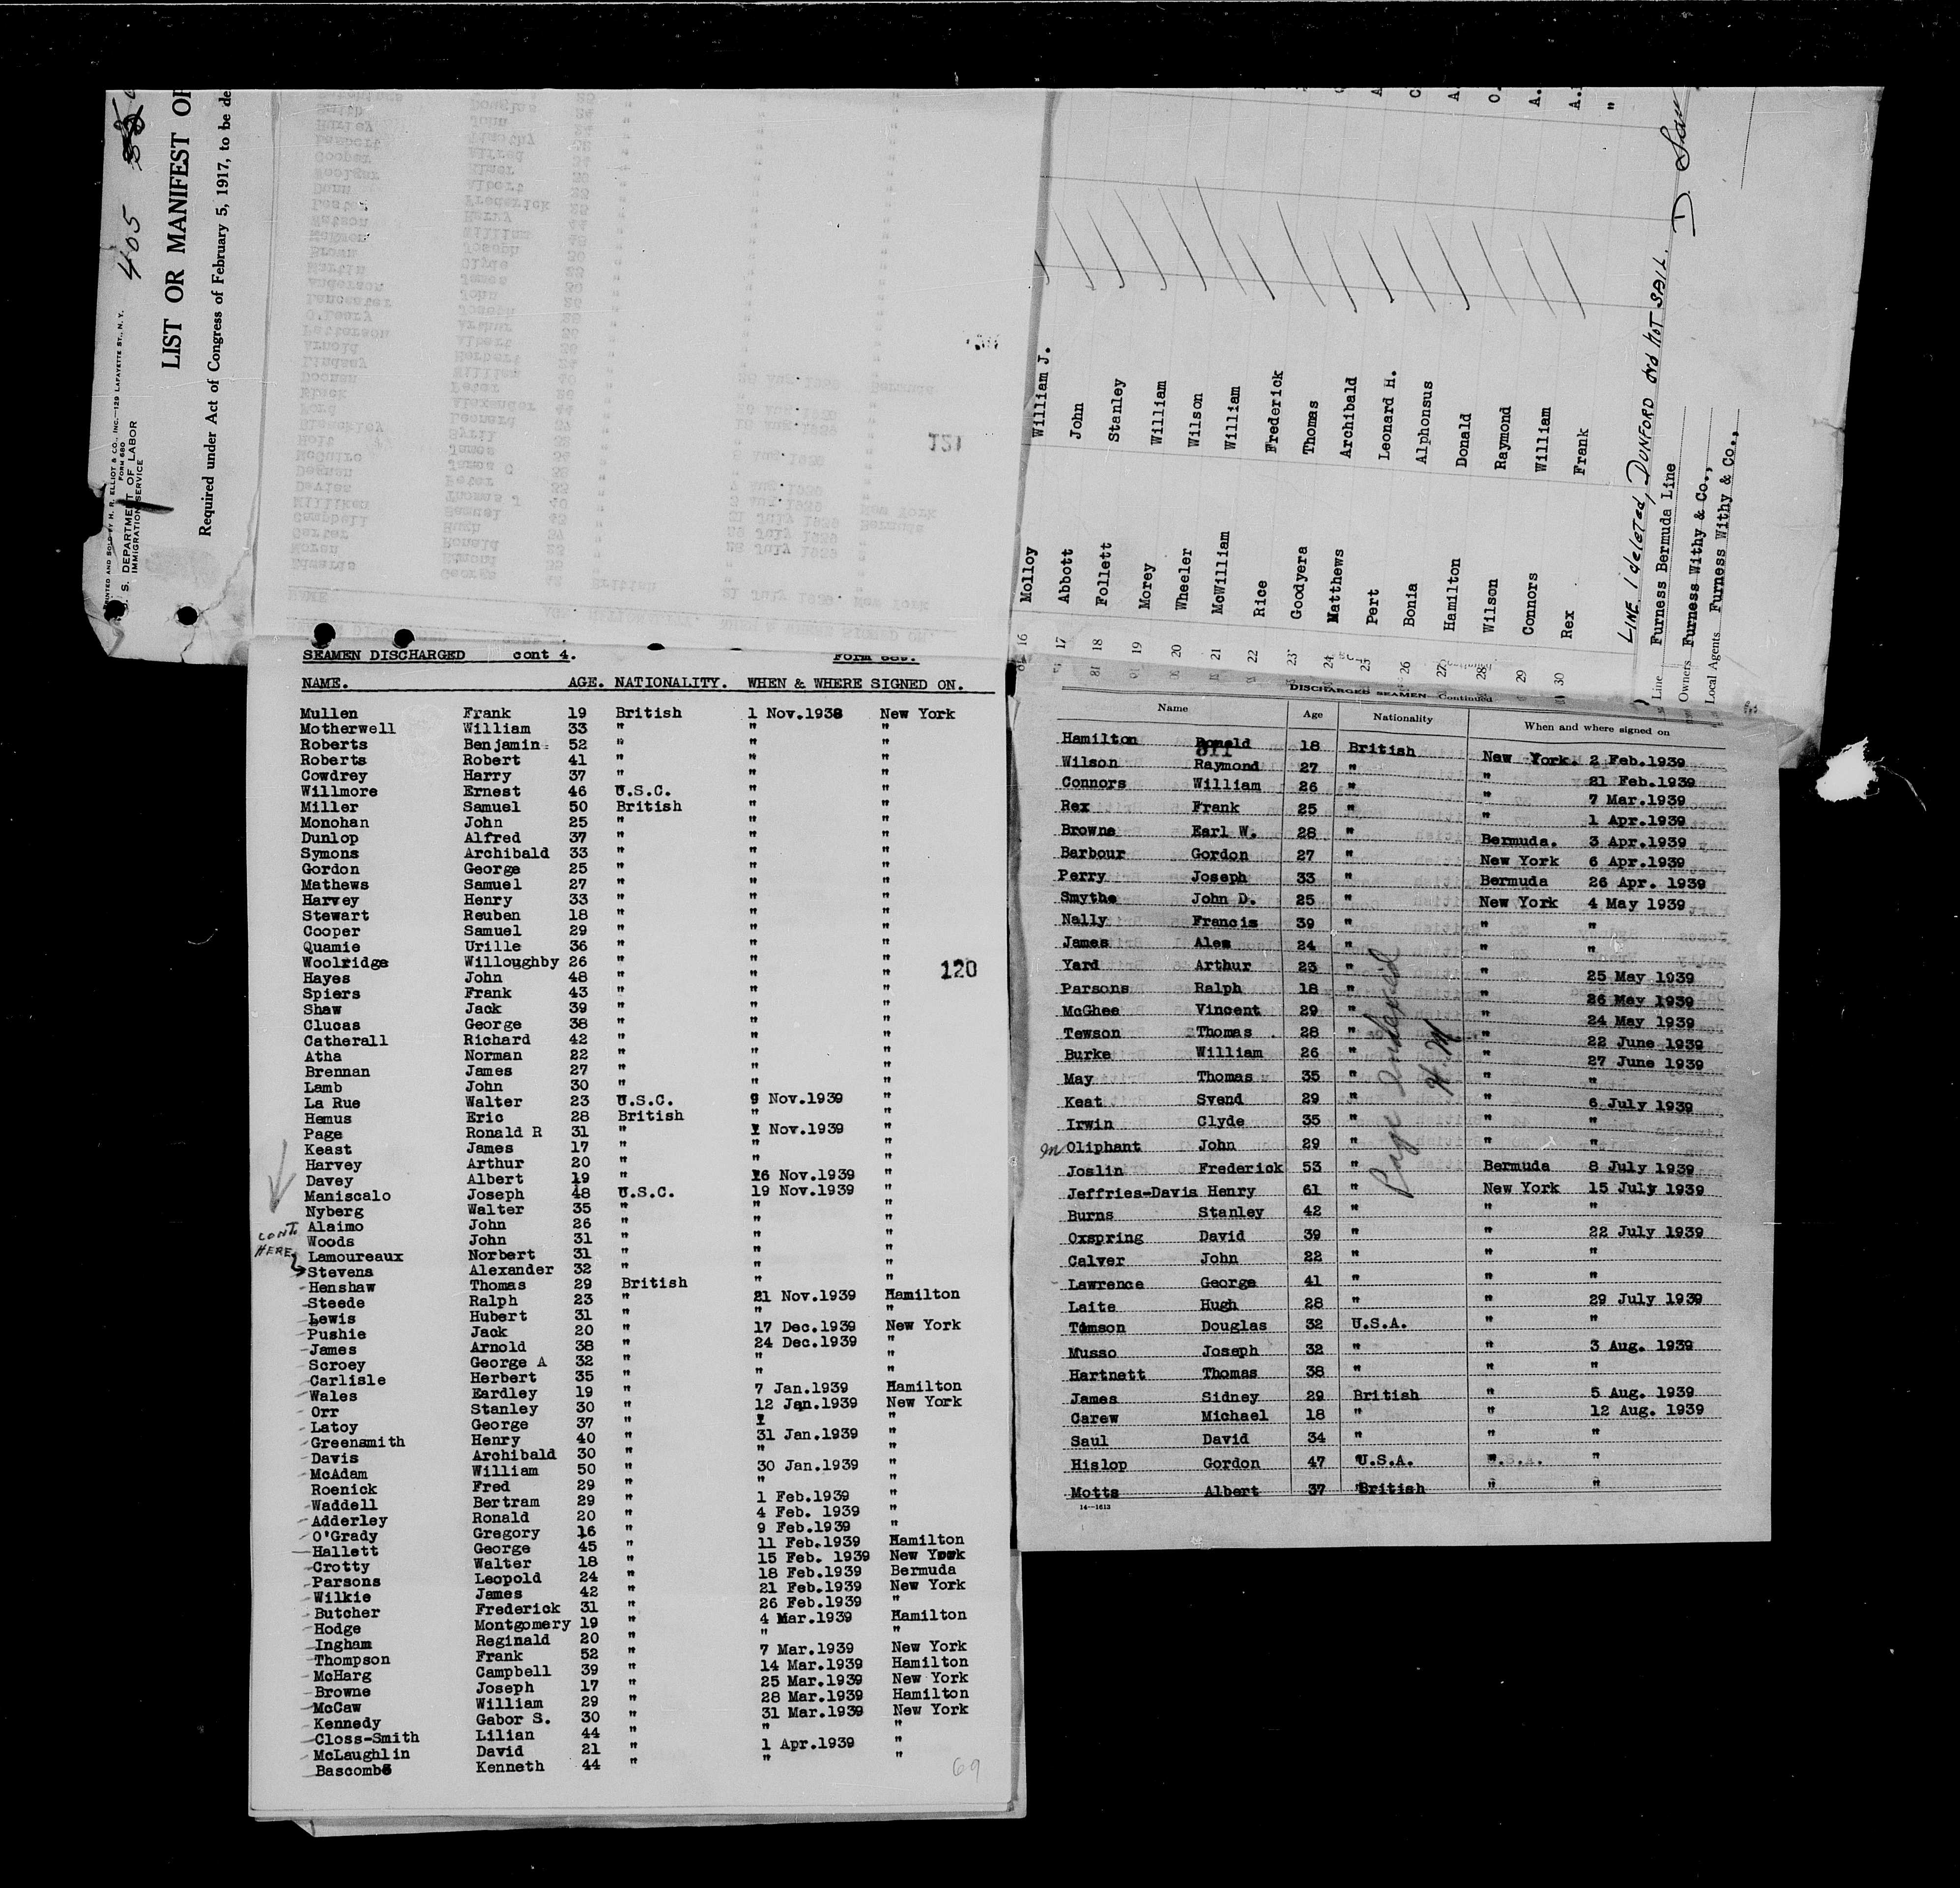 405
PRINTED AND SOLD BY H. R. ELLIOT & CO., INC.—129 LAFAYETTE ST., N. Y.
FORM 680
U. S. DEPARTMENT OF LABOR
IMMIGRATION SERVICE
LIST OR MANIFEST OF
Required under Act of Congress of February 5, 1917, to be de
121
SEAMEN DISCHARGED cont 4. Form 689.
NAME. AGE. NATIONALITY. WHEN & WHERE SIGNED ON.
Mullen Frank 19 British 1 Nov.1938 New York
Motherwell William 33 " " "
Roberts Benjamin 52 " " "
Roberts Robert 41 " " "
Cowdrey Harry 37 " " "
Willmore Ernest 46 U.S.C. " "
Miller Samuel 50 British " "
Monohan John 25 " " "
Dunlop Alfred 37 " " "
Symons Archibald 33 " " "
Gordon George 25 " " "
Mathews Samuel 27 " " "
Harvey Henry 33 " " "
Stewart Reuben 18 " " "
Cooper Samuel 29 " " "
Quamie Urille 36 " " "
Woolridge Willoughby 26 " " "
120
Hayes John 48 " " "
Spiers Frank 43 " " "
Shaw Jack 39 " " "
Clucas George 38 " " "
Catherall Richard 42 " " "
Atha Norman 22 " " "
Brennan James 27 " " "
Lamb John 30 " " "
La Rue Walter 23 U.S.C. 9 Nov.1939 "
Hemus Eric 28 British " "
Page Ronald R 31 " Nov.1939 "
Keast James 17 " " "
Harvey Arthur 20 " " "
Davey Albert 19 " 16 Nov.1939 "
Maniscalo Joseph 48 U.S.C. 19 Nov.1939 "
Nyberg Walter 35 " " "
Alaimo John 26 " " "
Woods John 31 " " "
Lamoureaux Norbert 31 " " "
CONT. HERE
Stevens Alexander 32 " " "
Henshaw Thomas 29 British " "
Steede Ralph 23 " 21 Nov.1939 Hamilton
Lewis Hubert 31 " " "
Pushie Jack 20 " 17 Dec.1939 New York
James Arnold 38 " 24 Dec.1939 "
Scroey George A 32 " " "
Carlisle Herbert 35 " " "
Wales Eardley 19 " 7 Jan.1939 Hamilton
Orr Stanley 30 " 12 Jan.1939 New York
Latoy George 37 " "
Greensmith Henry 40 " 31 Jan.1939 "
Davis Archibald 30 " " "
McAdam William 50 " 30 Jan.1939 "
Roenick Fred 29 " " "
Waddell Bertram 29 " 1 Feb.1939 "
Adderley Ronald 20 " 4 Feb. 1939 "
O'Grady Gregory 16 " 9 Feb.1939 "
Hallett George 45 " 11 Feb.1939 Hamilton
Crotty Walter 18 " 15 Feb. 1939 New York
Parsons Leopold 24 " 18 Feb.1939 Bermuda
Wilkie James 42 " 21 Feb.1939 New York
Butcher Frederick 31 " 26 Feb.1939 "
Hodge Montgomery 19 " 4 Mar.1939 Hamilton
Ingham Reginald 20 " " "
Thompson Frank 52 " 7 Mar.1939 New York
McHarg Campbell 39 " 14 Mar.1939 Hamilton
Browne Joseph 17 " 25 Mar.1939 New York
McCaw William 29 " 28 Mar.1939 Hamilton
Kennedy Gabor S. 30 " 31 Mar.1939 New York
Closs-Smith Lilian 44 " " "
McLaughlin David 21 " 1 Apr.1939 "
Bascombe Kenneth 44 " " "
69
16 Molloy William J.
17 Abbott John
18 Follett Stanley
19 Morey William
20 Wheeler Wilson
21 McWilliam William
22 Rice Frederick
23 Goodyera Thomas
24 Matthews Archibald
25 Pert Leonard H.
26 Bonia Alphonsus
27 Hamilton Donald
28 Wilson Raymond
29 Connors William
30 Rex Frank
LINE 1 deleted, DUNFORD did NOT SAIL.
Line Furness Bermuda Line
Owners Furness Withy & Co.,
Local Agents Furness Withy & Co.,
DISCHARGED SEAMEN—Continued
Name Age Nationality When and where signed on
Hamilton Donald 18 British New York. 2 Feb.1939
811
Wilson Raymond 27 " " 21 Feb.1939
Connors William 26 " " 7 Mar.1939
Rex Frank 25 " " 1 Apr.1939
Browne Earl W. 28 " Bermuda. 3 Apr.1939
Barbour Gordon 27 " New York 6 Apr.1939
Perry Joseph 33 " Bermuda 26 Apr. 1939
Smythe John D. 25 " New York 4 May 1939
Nally Francis 39 " " "
James Alex 24 " " "
Yard Arthur 23 " " 25 May 1939
Parsons Ralph 18 " " 26 May 1939
McGhee Vincent 29 " " 24 May 1939
Tewson Thomas 28 " " 22 June 1939
Burke William 26 " " 27 June 1939
May Thomas 35 " " "
Keat Svend 29 " " 6 July 1939
Irwin Clyde 35 " " "
m Oliphant John 29 " " "
Joslin Frederick 53 " Bermuda 8 July 1939
Jeffries-Davis Henry 61 " New York 15 July 1939
Burns Stanley 42 " " "
Oxspring David 39 " " 22 July 1939
Calver John 22 " " "
Lawrence George 41 " " "
Laite Hugh 28 " " 29 July 1939
Timson Douglas 32 U.S.A. " "
Musso Joseph 32 " " 3 Aug. 1939
Hartnett Thomas 38 " " "
James Sidney 29 British " 5 Aug. 1939
Carew Michael 18 " " 12 Aug. 1939
Saul David 34 " " "
Hislop Gordon 47 U.S.A. " "
Motts Albert 37 British " "
14—1613
Page Indexed
H.M